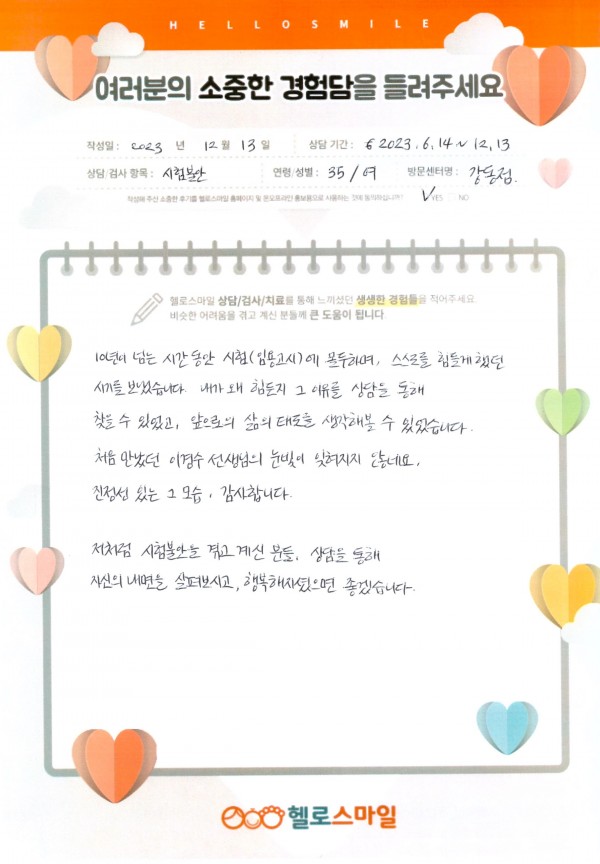 HELLOSMILE
여러분의 소중한 경험담을 들려주세요
작성일 : 2023 년 12 월 13 일 상담 기간 : 2023. 6. 14 ~ 12. 13
상담/검사 항목 : 시험불안 연령/성별 : 35 / 여 방문센터명 : 강동점.
작성해 주신 소중한 후기를 헬로스마일 홈페이지 및 온오프라인 홍보용으로 사용하는 것에 동의하십니까? ✓YES NO
헬로스마일 상담/검사/치료를 통해 느끼셨던 생생한 경험들을 적어주세요.
비슷한 어려움을 겪고 계신 분들께 큰 도움이 됩니다.
10년이 넘는 시간동안 시험(임용고시)에 몰두하며, 스스로를 힘들게 했던
시기를 보냈었습니다. 내가 왜 힘든지 그 이유를 상담을 통해
찾을 수 있었고, 앞으로의 삶의 태도를 생각해볼 수 있었습니다.
처음 만났던 이경수 선생님의 눈빛이 잊혀지지 않네요.
진정성 있는 그 모습, 감사합니다.
저처럼 시험불안을 겪고 계신 분들, 상담을 통해
자신의 내면을 살펴보시고, 행복해지셨으면 좋겠습니다.
헬로스마일